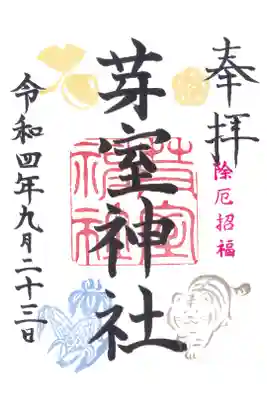 奉拝
除厄招福
芽室神社
芽室
神社
令和四年九月二十三日